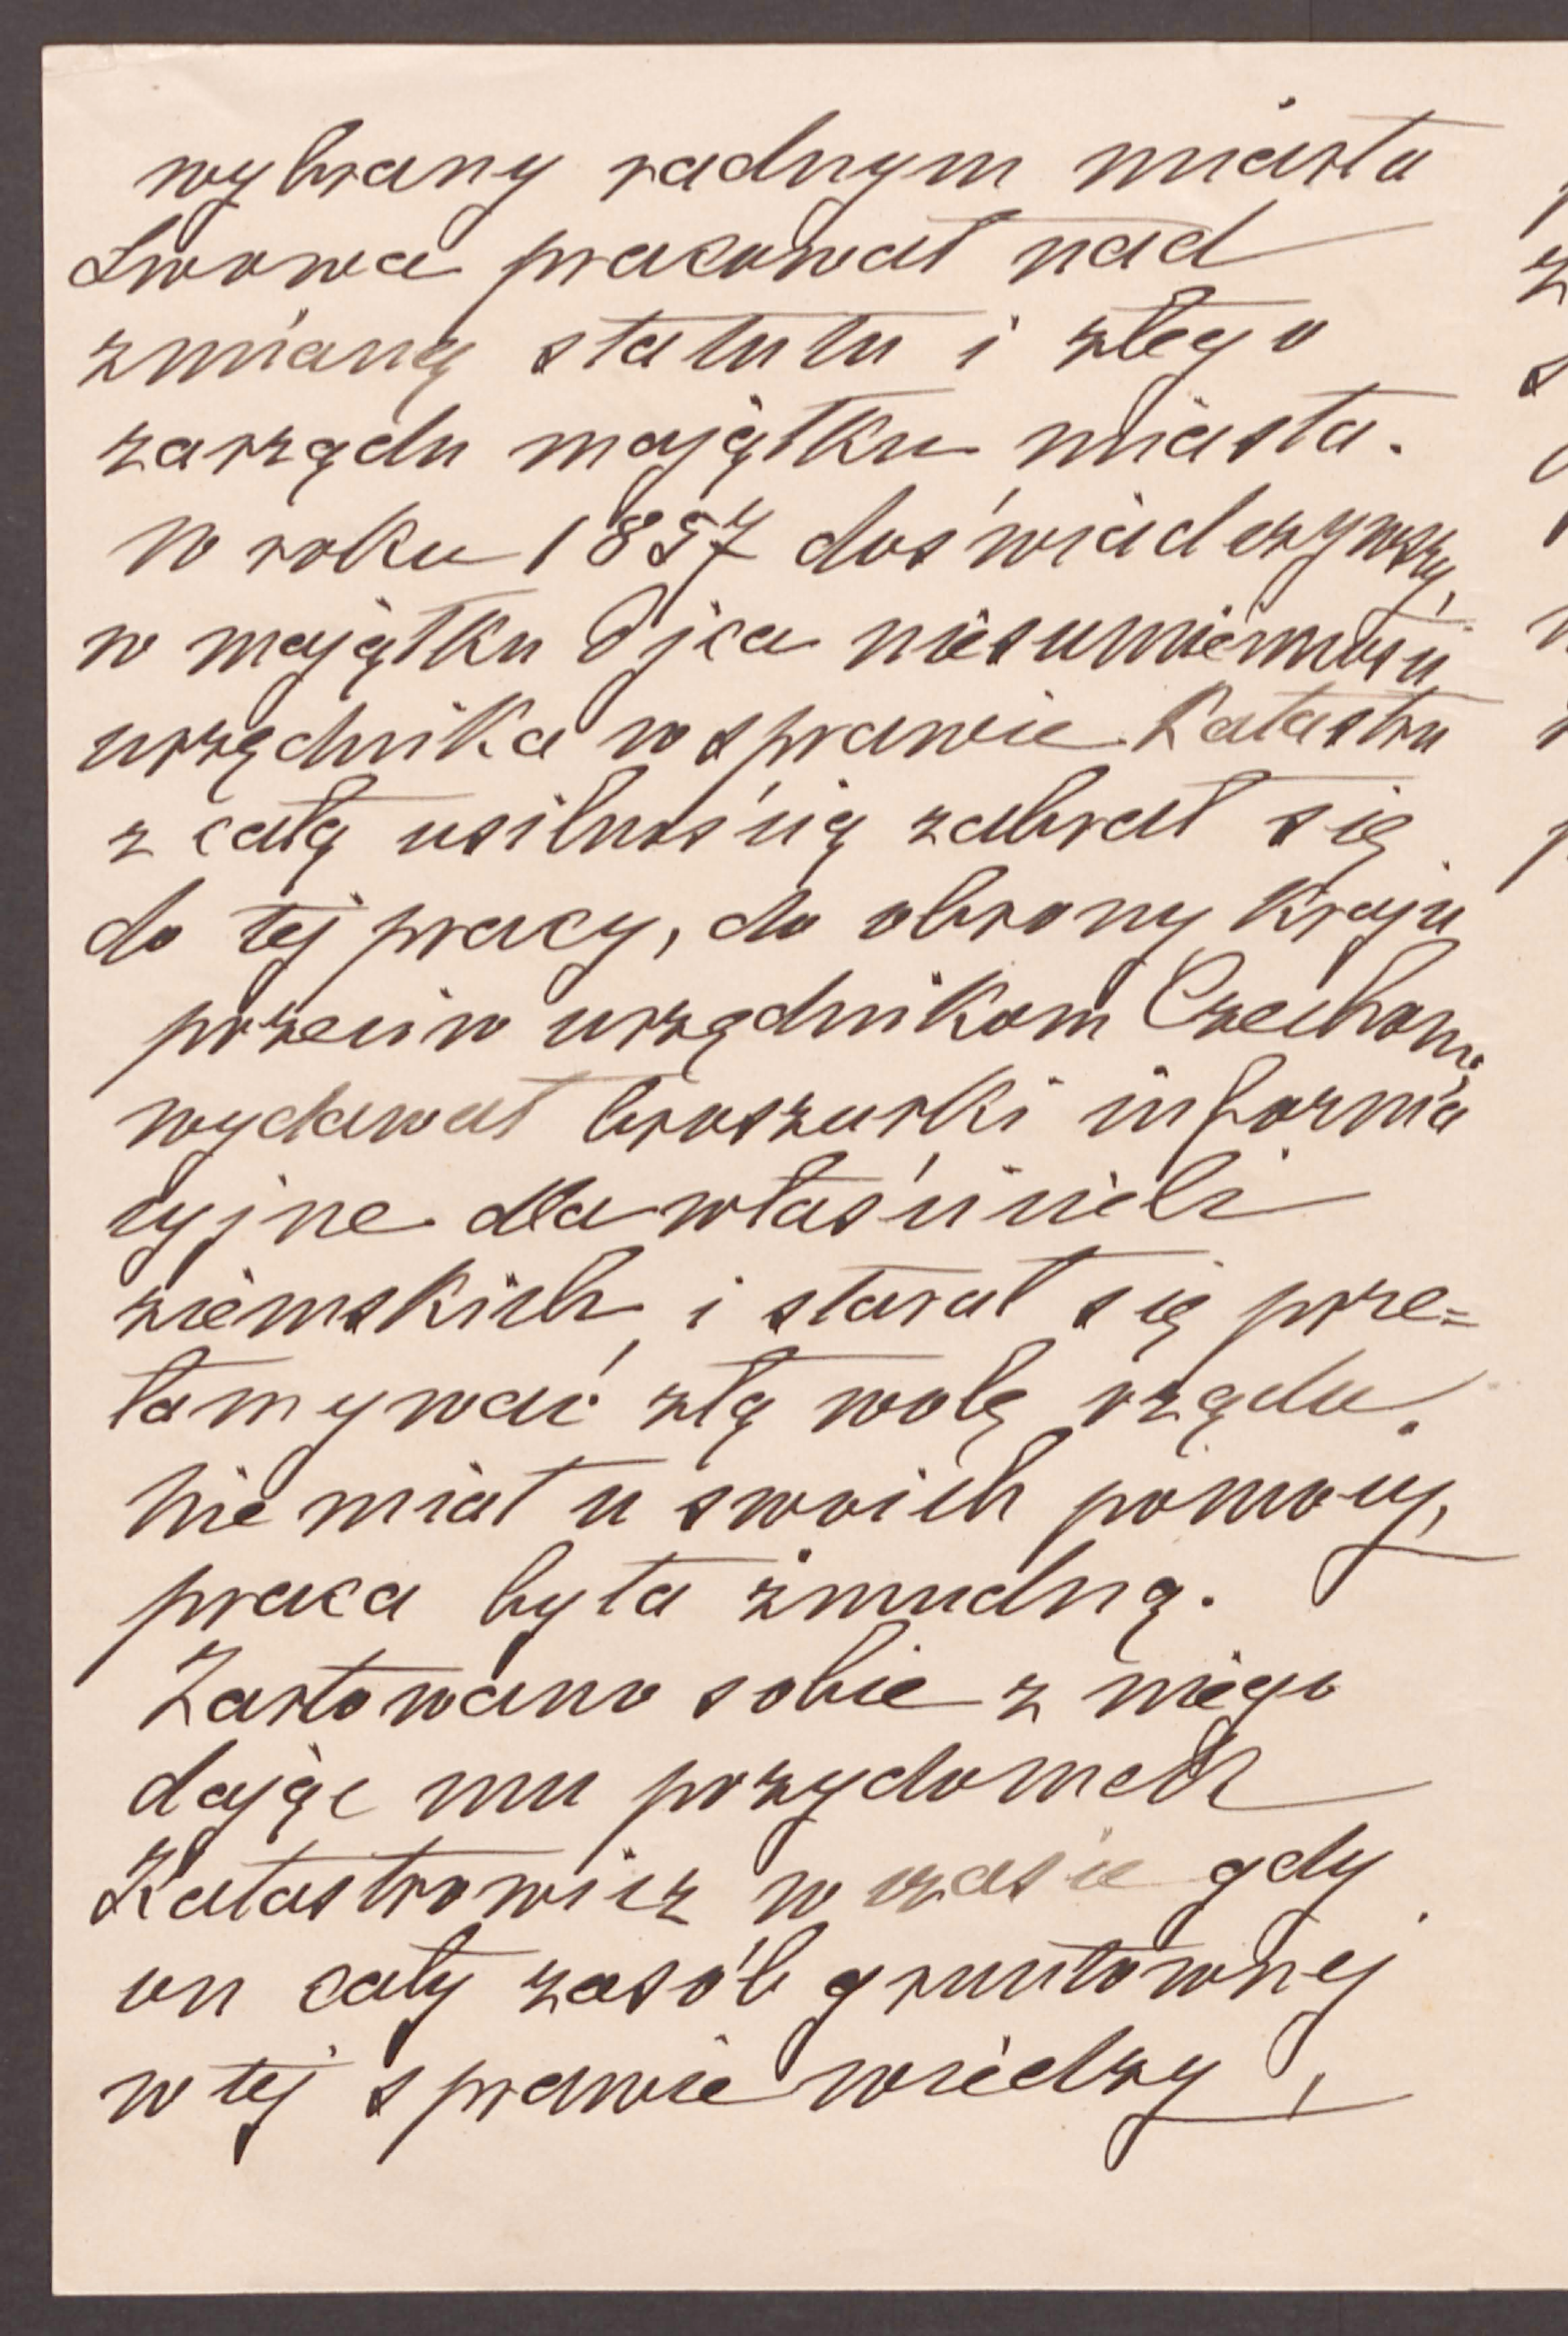 wybrany radnym miasta
Lwowa pracował nad
zmianą statutu i złego
zarządu majątku miasta.
W roku 1857 doświadczywszy,
w majątku Ojca niesumienności
urzędnika w sprawie Katastru
z całą usilnością zabrał się
do tej pracy, do obrony Kraju
przeciw urzędnikom Czechom,
wydawał broszurki informa
cyjne dla właścicieli
ziemskich, i starał się prze=
łamywać złą wolę rządu.
Nie miał u swoich pomocy,
praca była żmudną.
Żartowano sobie z niego
dając mu przydomek
Katastrowicz w czasie gdy
on cały zasób gruntownej
w tej sprawie wiedzy,